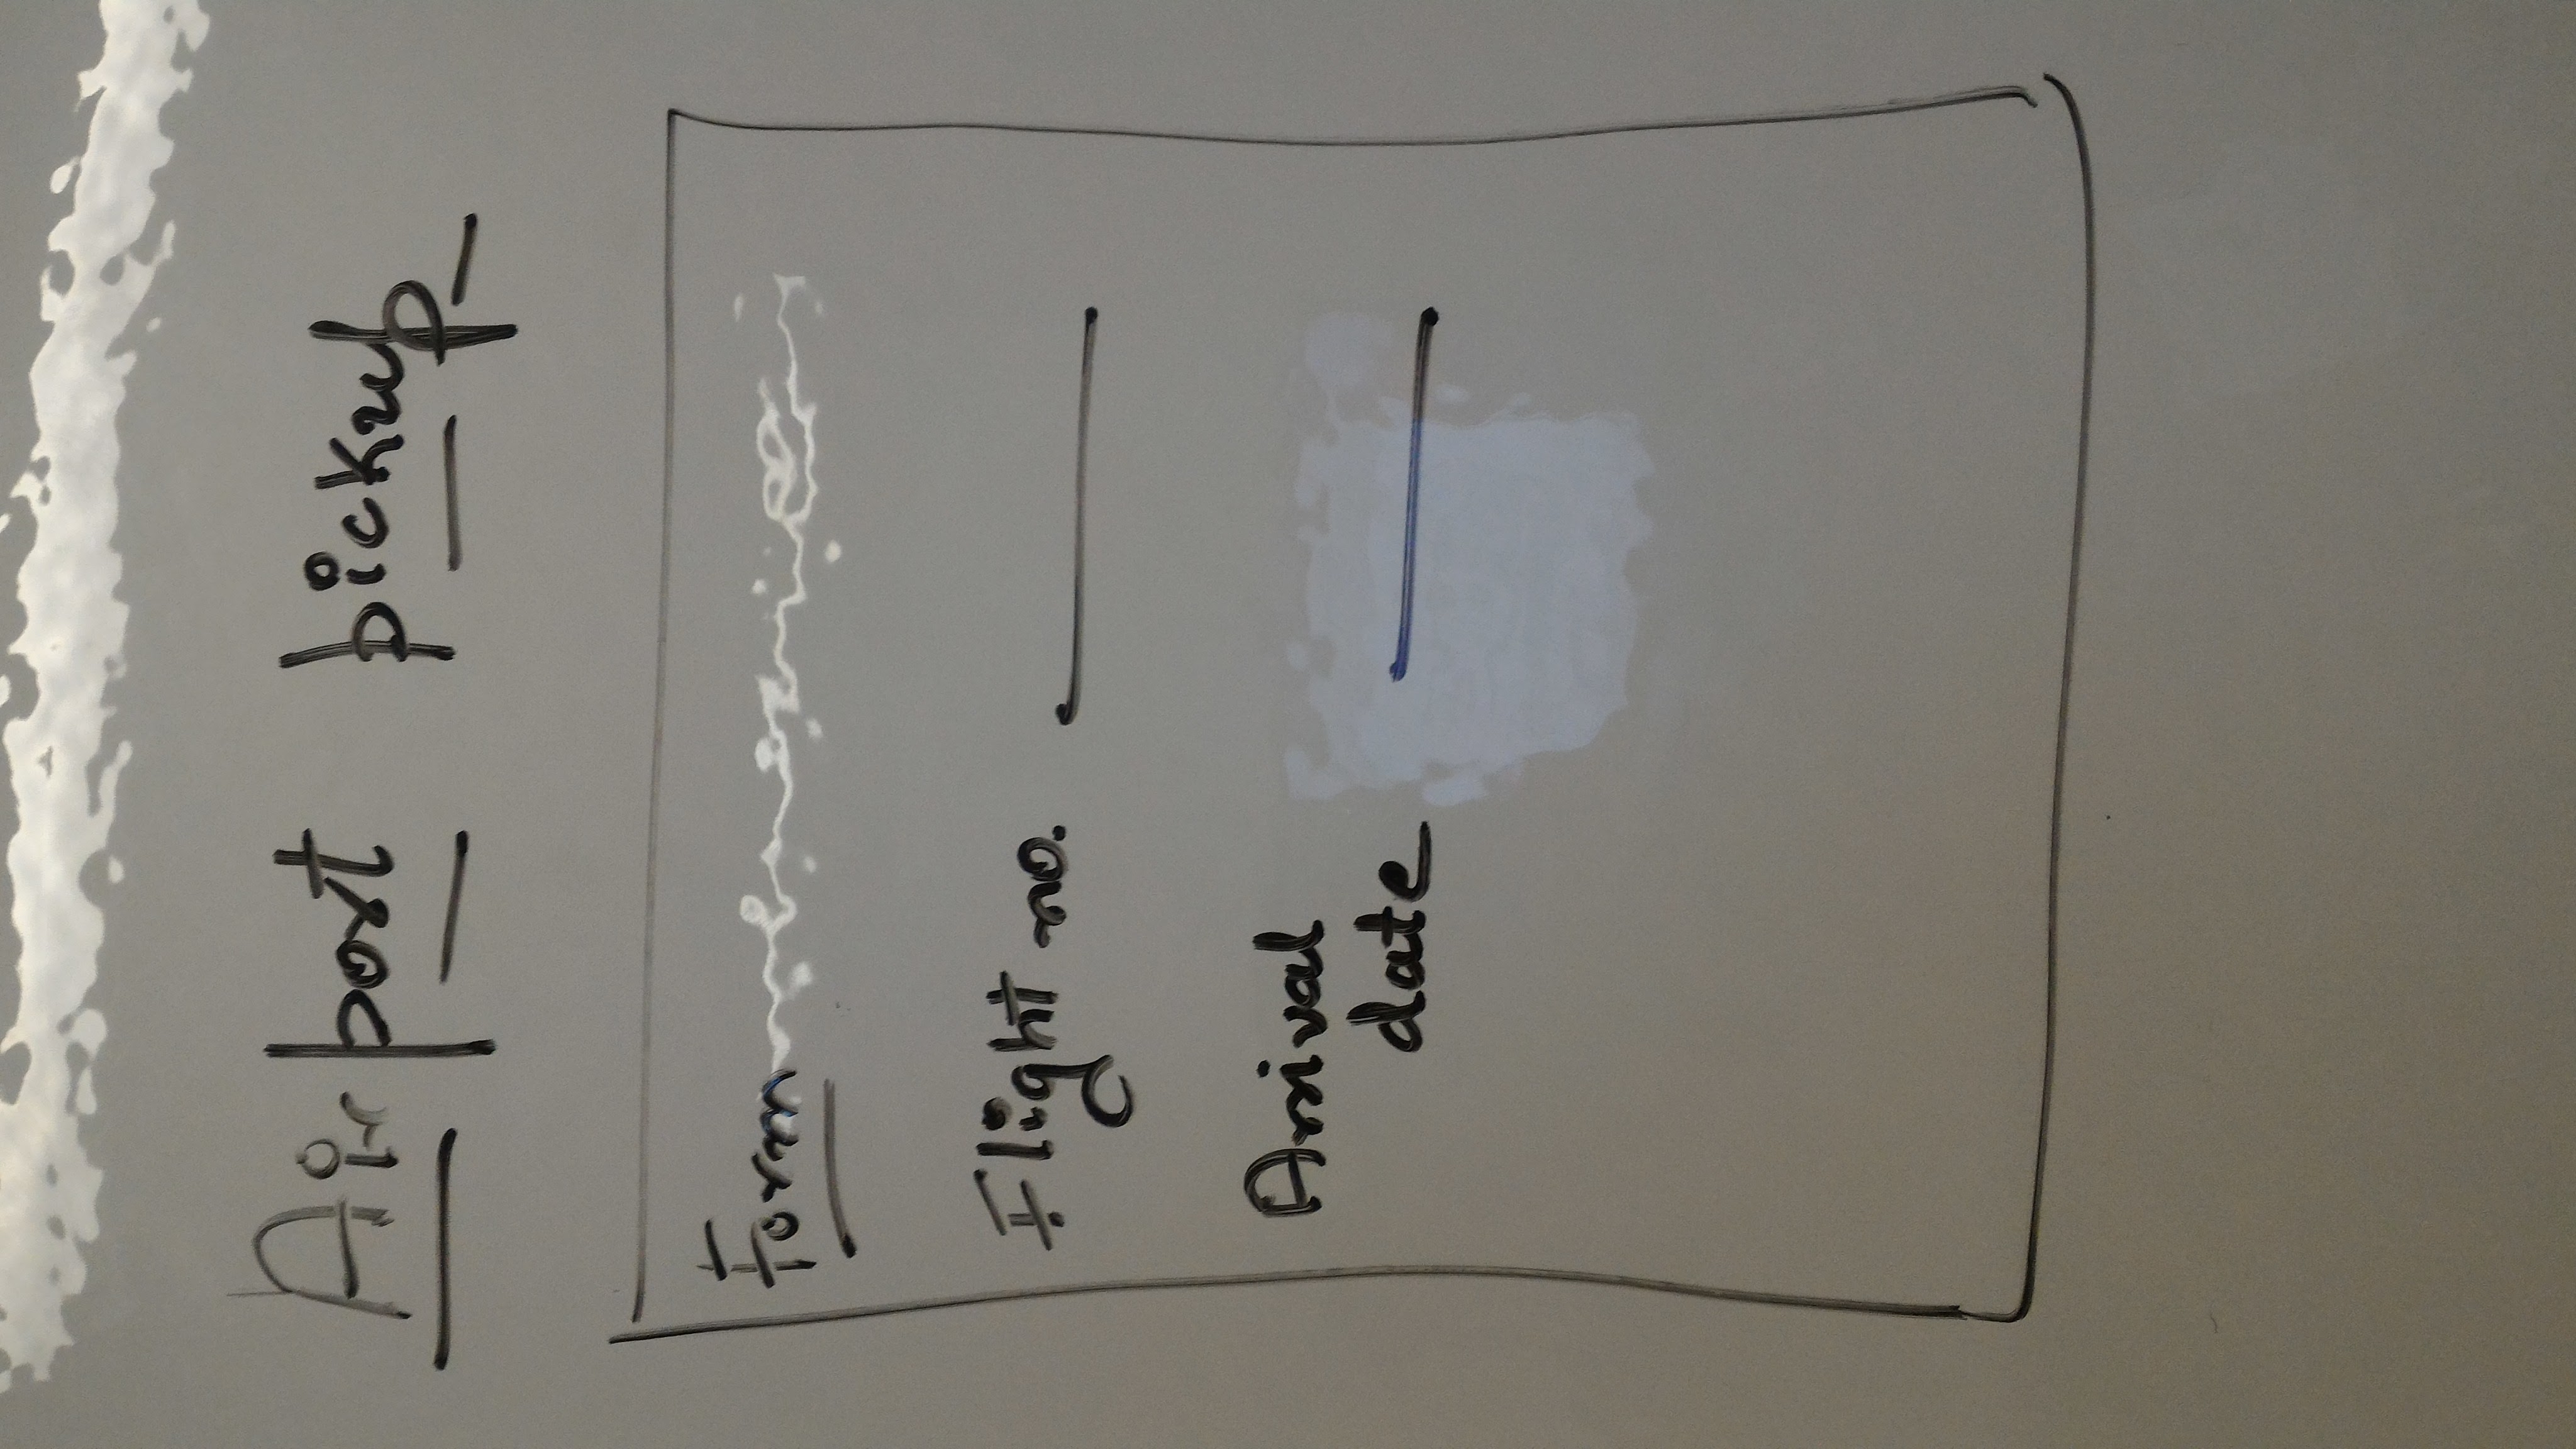 Airport pickup
Form
Flight no.
Arrival
date